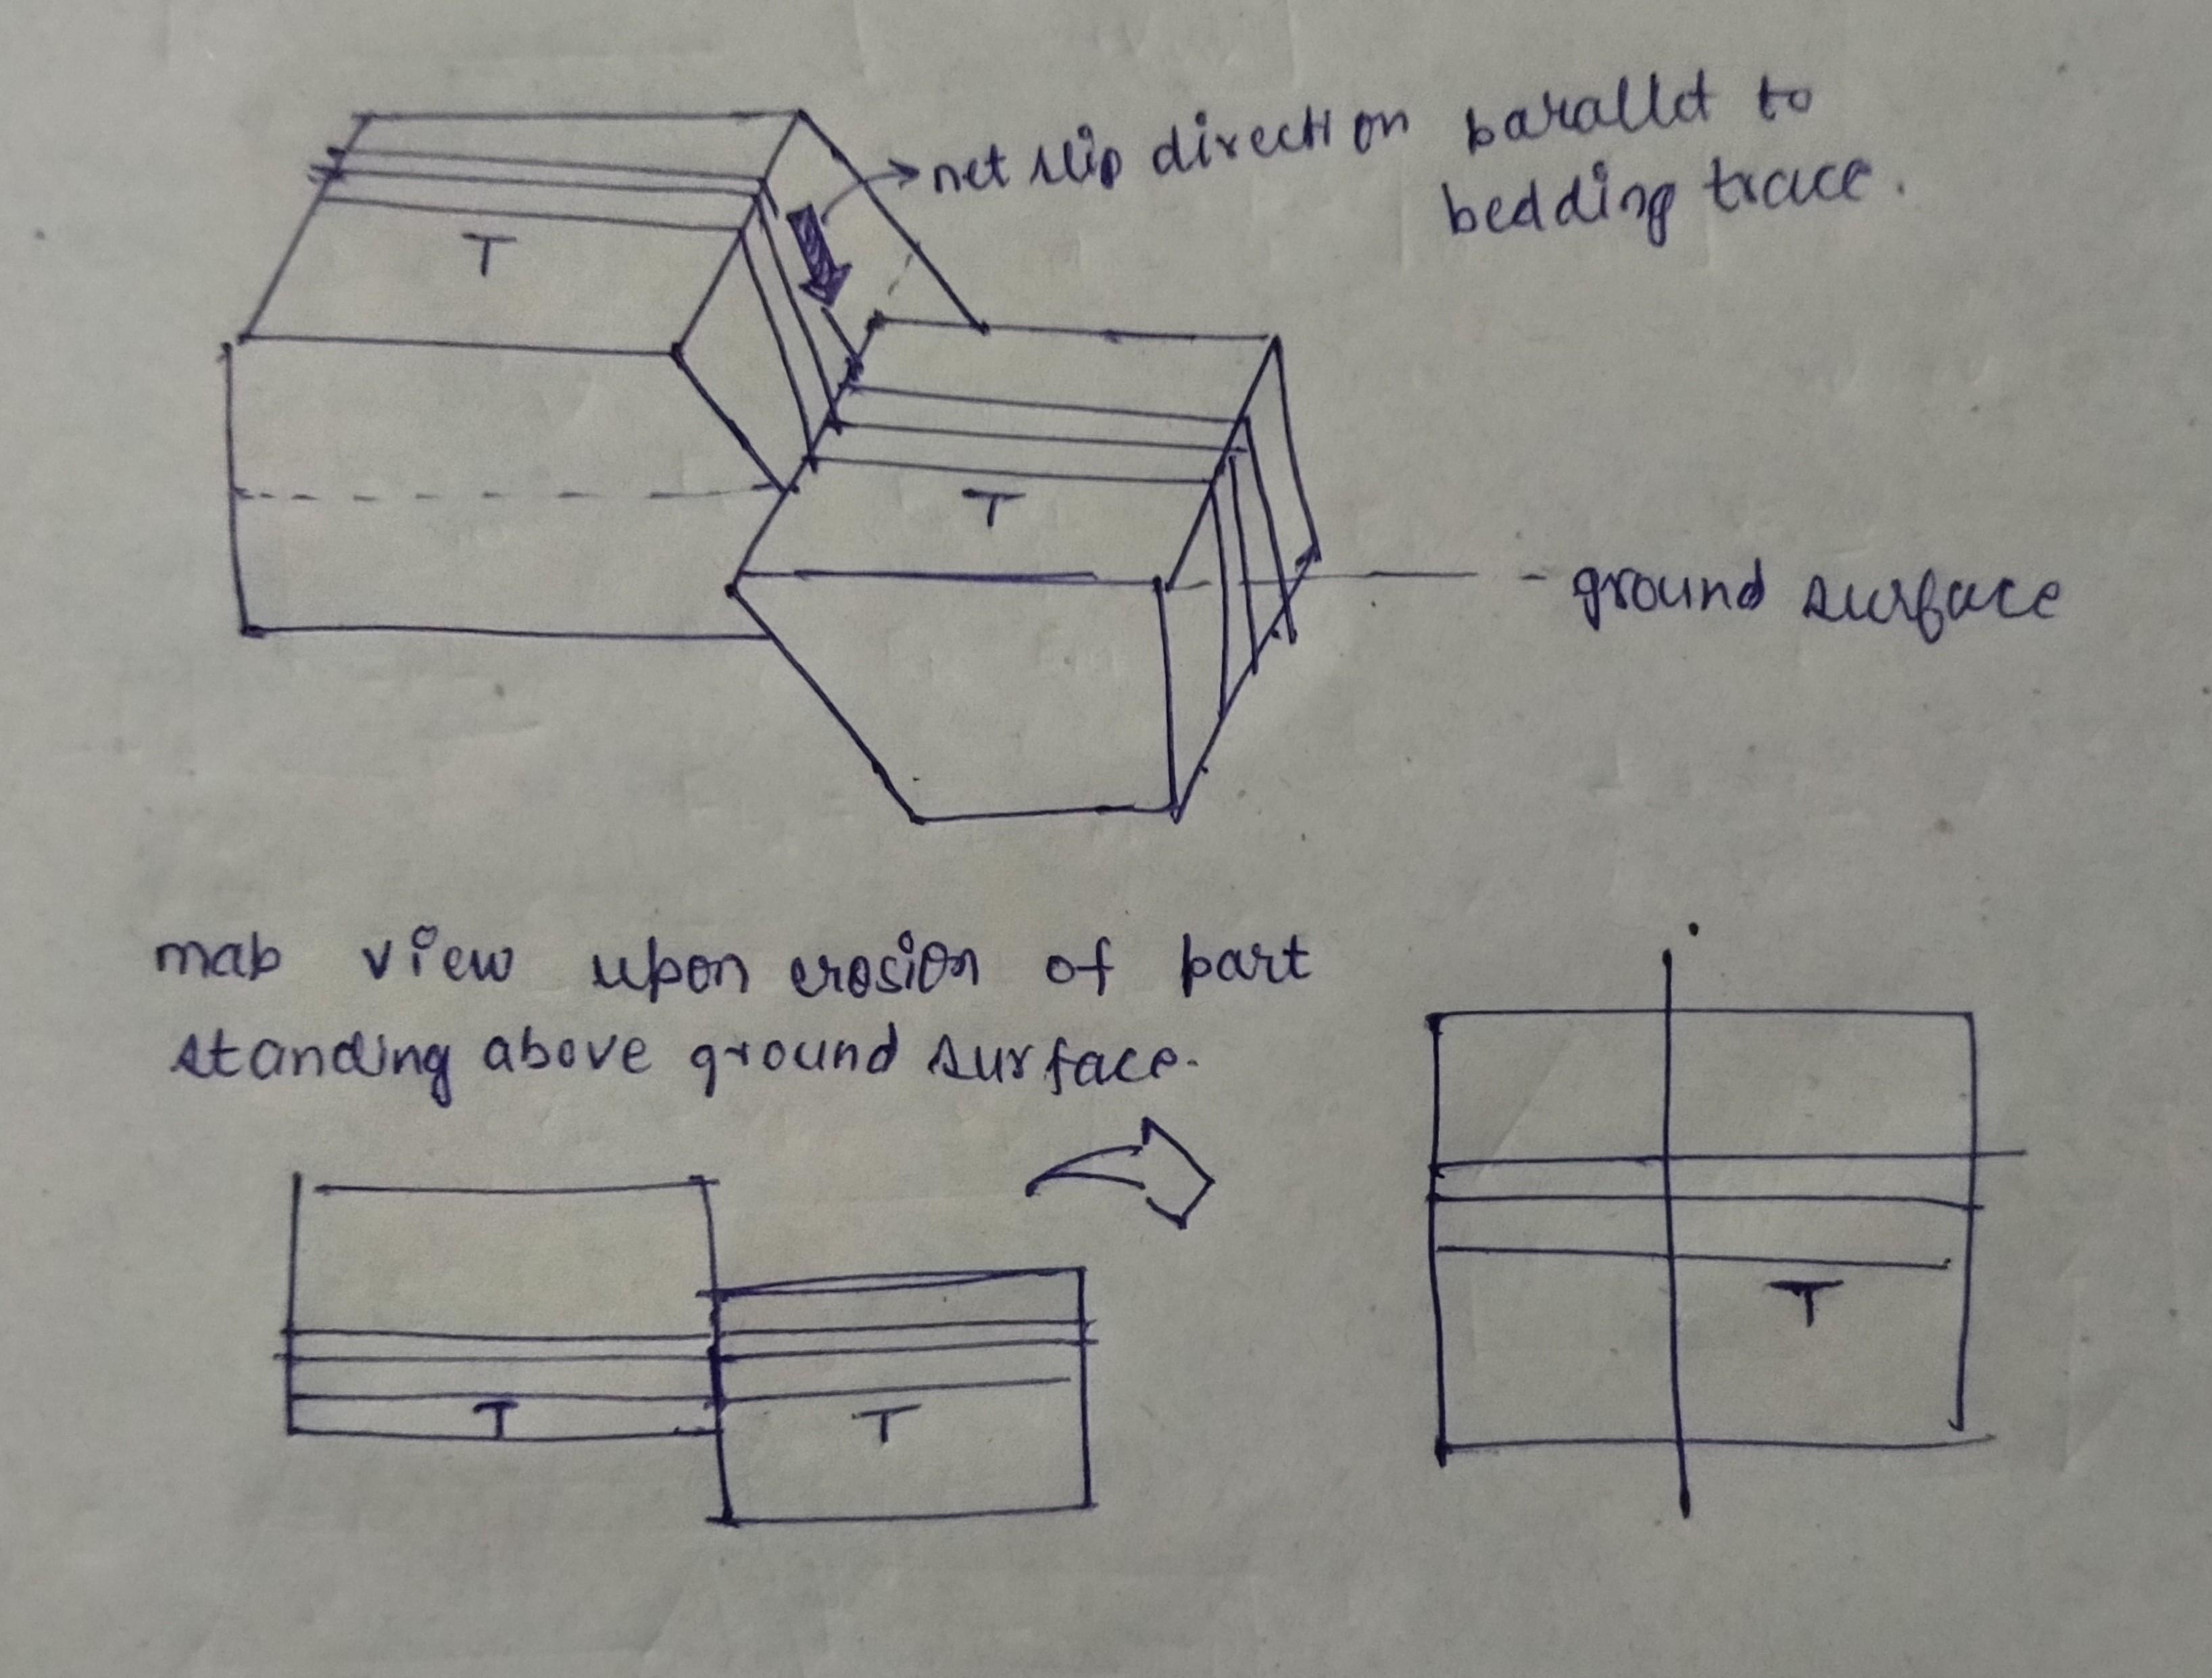 net slip direction parallel to
bedding trace.
T
T
ground surface
map view upon erosion of part
standing above ground surface.
T
T
T